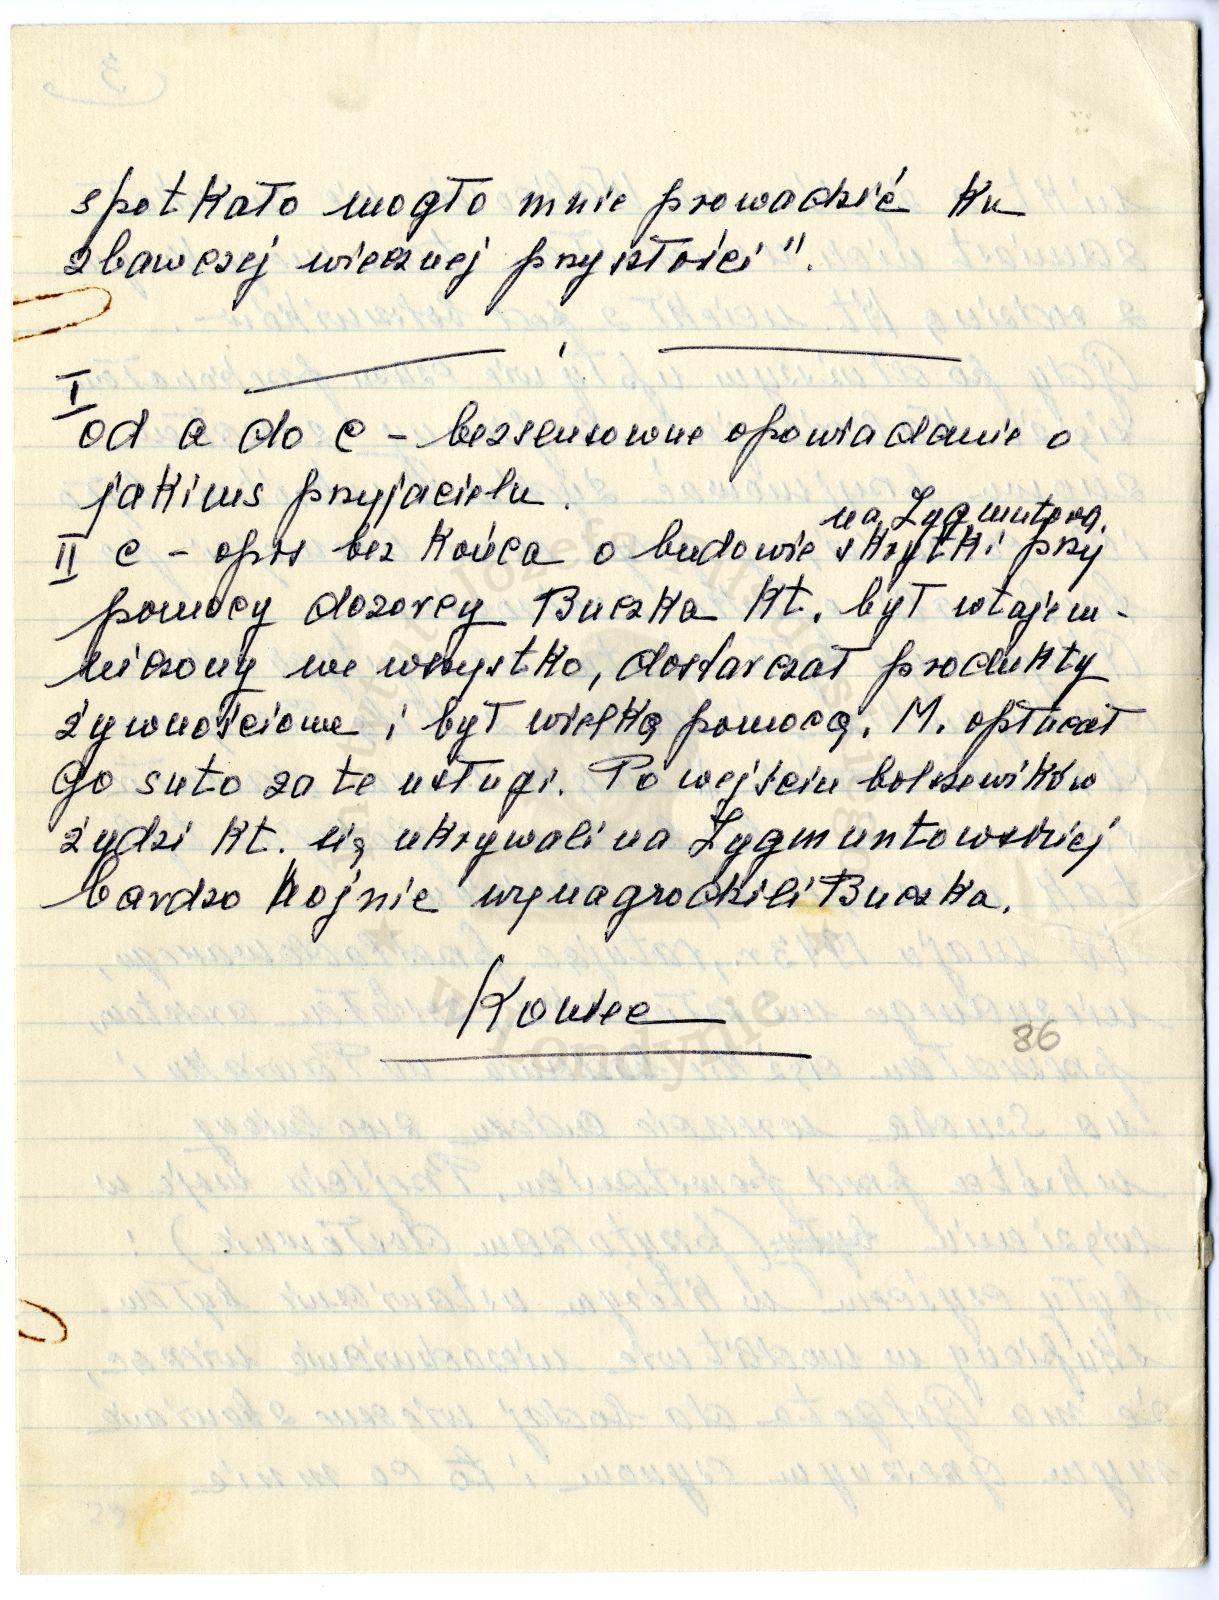 spotkało mogło mnie prowadzić ku
zbawczej wiecznej przyszłości".
I
od a do c – bezsensowne opowiadanie o
jakimś przyjacielu.
na Zygmuntows.
II c – opis bez końca o budowie skrytki przy
pomocy dozorcy Buczka kt. był wtajem-
niczony we wszystko, dostarczał produkty
żywnościowe i był wielką pomocą. M. opłacał
go suto za te usługi. Po wejściu bolszewików
żydzi kt. się ukrywali na Zygmuntowskiej
bardzo hojnie wynagrodzili Buczka.
Koniec
86